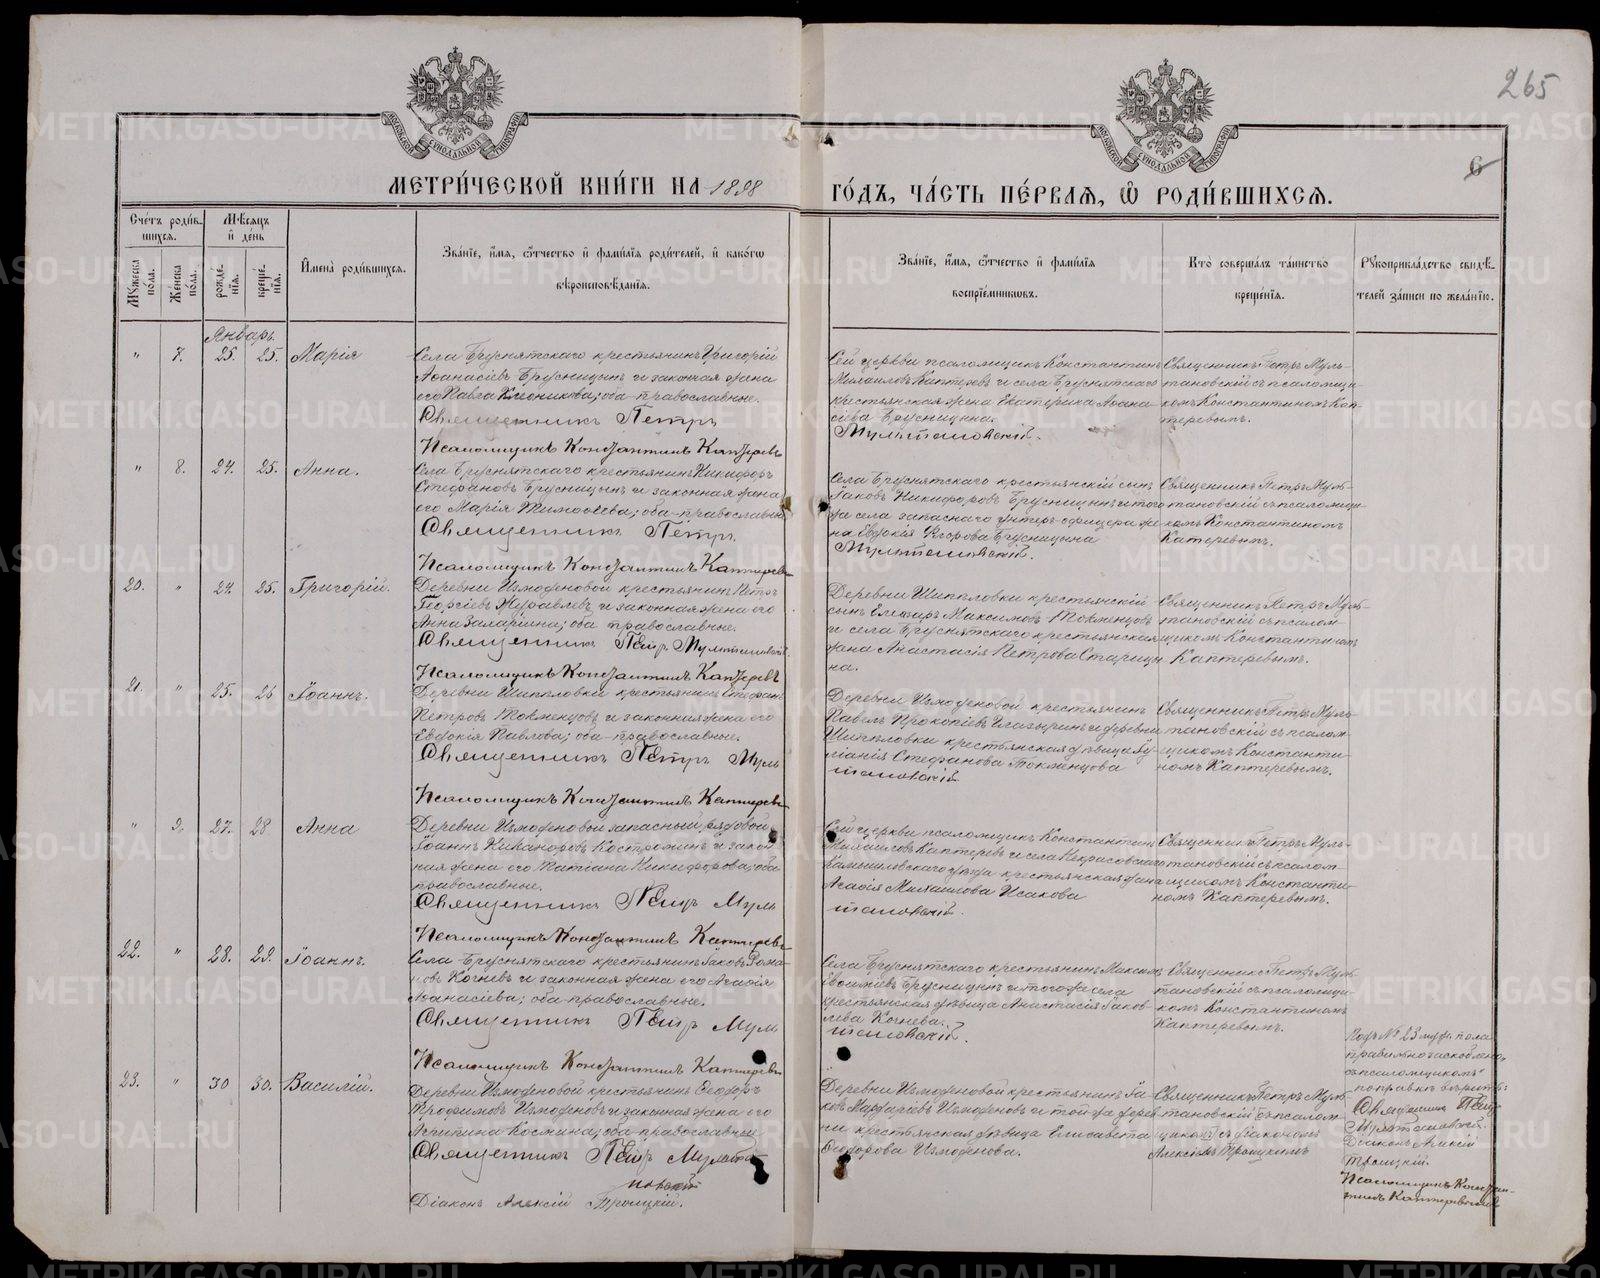 265
6
МОСКОВСКОЙ СѴНОДАЛЬНОЙ ТИПОГРАФІИ
МОСКОВСКОЙ СѴНОДАЛЬНОЙ ТИПОГРАФІИ
МЕТРИ́ЧЕСКОЙ КНИ́ГИ НА 1898
ГО́ДЪ, ЧА́СТЬ ПЕ́РВАЯ, Ѽ РОДИ́ВШИХСЯ.
Сче́тъ роди́в-
шихся.
Му́жеска
по́ла.
Же́нска
по́ла.
Мѣ́сяцъ
и҆ де́нь
рожде́-
нїя.
креще́-
нїя.
И҆мена̀ роди́вшихся.
Зва́нїе, и҆́мя, ѻ҆́тчество и҆ фами́лїя роди́телей, и҆ како́гѡ
вѣроисповѣ́данїя.
Зва́нїе, и҆́мя, ѻ҆́тчество и҆ фами́лїя
воспрїе́мниковъ.
Кто̀ соверша́лъ та́инство
креще́нїя.
Рукоприкла́дство свидѣ́-
телей за́писи по жела́нїю.
Январь.
" 7. 25. 25. Марія
Села Бруснятскаго крестьянинъ Григорій
Аѳанасіевъ Брусницынъ и законная жена
его Павла; оба православные.
Священникъ Петръ
Мультановскій.
Псаломщикъ Константинъ Каптеревъ
Сей церкви псаломщикъ Константинъ
Михаиловъ Каптеревъ и села Бруснятскаго
крестьянская жена Екатерина Аѳана-
сіева Брусницына.
Священникъ Петръ Муль-
тановскій съ псаломщи-
комъ Константиномъ Кап-
теревымъ.
" 8. 24. 25. Анна.
Села Бруснятскаго крестьянинъ Никифоръ
Стефановъ Брусницынъ и законная жена
его Марія Тимоѳеева; оба православные
Священникъ Петръ
Мультановскій.
Псаломщикъ Константинъ Каптеревъ
Села Бруснятскаго крестьянскій сынъ
Іаковъ Никифоровъ Брусницынъ и того
же села запаснаго унтеръ-офицера же-
на Евдокія Егорова Брусницына
Священникъ Петръ Муль-
тановскій съ псаломщи-
комъ Константиномъ
Катеревымъ.
20. " 24. 25. Григорій.
Деревни Измоденовой крестьянинъ Петръ
Георгіевъ Журавлевъ и законная жена его
Анна; оба православные.
Священникъ Петръ Мультановскій.
Псаломщикъ Константинъ Каптеревъ
Деревни Шипиловки крестьянскій
сынъ Елеазаръ Максимовъ Токменцовъ
и села Бруснятскаго крестьянская
жена Анастасія Петрова Старицы-
на.
Священникъ Петръ Муль-
тановскій съ псалом-
щикомъ Константиномъ
Каптеревымъ.
21. " 25. 26 Іоаннъ.
Деревни Шипиловки крестьянинъ Стефанъ
Петровъ Токменцовъ и законная жена его
Евдокія Павлова; оба православные.
Священникъ Петръ Муль
тановскій
Псаломщикъ Константинъ Каптеревъ
Деревни Измоденовой крестьянинъ
Павелъ Прокопіевъ Глазыринъ и деревни
Шипиловки крестьянская дѣвица Іу-
ліанія Стефанова Токменцова
Священникъ Петръ Муль-
тановскій съ псалом-
щикомъ Константи-
номъ Каптеревымъ.
" 9. 27. 28 Анна
Деревни Измоденовой запасный рядовой
Іоаннъ Никаноровъ Костроминъ и закон-
ная жена его Татіана Никифорова; оба
православные.
Священникъ Петръ Муль
тановскій.
Псаломщикъ Константинъ Каптеревъ
Сей церкви псаломщикъ Константинъ
Михаиловъ Каптеревъ и села Некрасовскаго
Камышловскаго уѣзда крестьянская жена
Агаѳія Михаилова Исакова
Священникъ Петръ Муль-
тановскій съ псалом-
щикомъ Константи-
номъ Каптеревымъ.
22. " 28. 29. Іоаннъ.
Села Бруснятскаго крестьянинъ Іаковъ Рома-
новъ Кочневъ и законная жена его Агаѳія
Аѳанасіева; оба православные.
Священникъ Петръ Муль
тановскій.
Псаломщикъ Константинъ Каптеревъ
Села Бруснятскаго крестьянинъ Максимъ
Брусницынъ и того же села
крестьянская дѣвица Анастасія Іаков-
лева Кочнева.
Священникъ Петръ Муль-
тановскій съ псаломщи-
комъ Константиномъ
Каптеревымъ.
23. " 30 30. Василій.
Деревни Измоденовой крестьянинъ Ѳеодоръ
Трофимовъ Измоденовъ и законная жена его
Агрипина Космина; оба православные
Священникъ Петръ Мульта
новскій
Діаконъ Алексій Троицкій.
Деревни Измоденовой крестьянинъ Іа-
ковъ Измоденовъ и той же дерев-
ни крестьянская дѣвица Елисавета
Ѳеодорова Измоденова.
Священникъ Петръ Муль-
тановскій съ псалом-
щикомъ съ діакономъ
Алексіемъ Троицкимъ
Подъ № 23 муж. пола
правильно заскоблено,
"съ псаломщикомъ"
поправкѣ вѣрить:
Священникъ Петръ
Мультановскій.
Діаконъ Алексій
Троицкій.
Псаломщикъ Констан-
тинъ Каптеревъ
METRIKI.GASO-URAL.RU